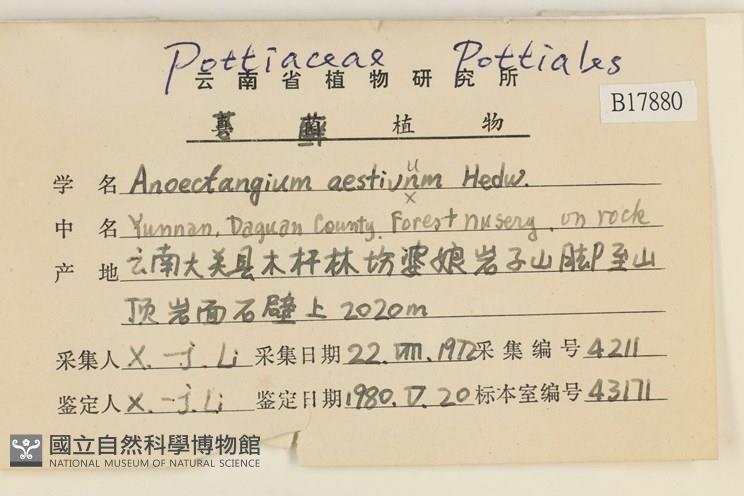 Pottiaceae Pottiales
云南省植物研究所
B17880
藓 植物
学名 Anoectangium aestivnm Hedw.
u
x
中名 Yunnan, Daguan County. Forest nuserg, on rock
产地 云南大关县木杆林场婆娘岩子山脚至山
顶岩面石壁上 2020m
采集人 X.-j. Li 采集日期 22.VIII.1972 采集编号 4211
鉴定人 X.-j. Li 鉴定日期 1980.V.20 标本室编号 43171
國立自然科學博物館
NATIONAL MUSEUM OF NATURAL SCIENCE